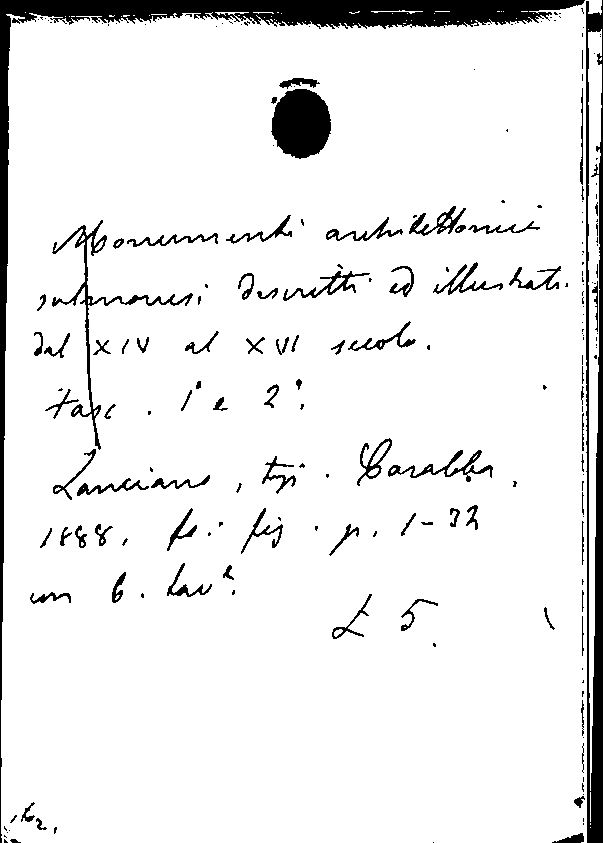 Monumenti architettonici
sulmonesi descritti ed illustrati
dal XIV al XVI secolo.
Fasc. 1° e 2°.
Lanciano, tip. Carabba,
1888, fo. fig. p. 1-32
con 6. tav.
£ 5.